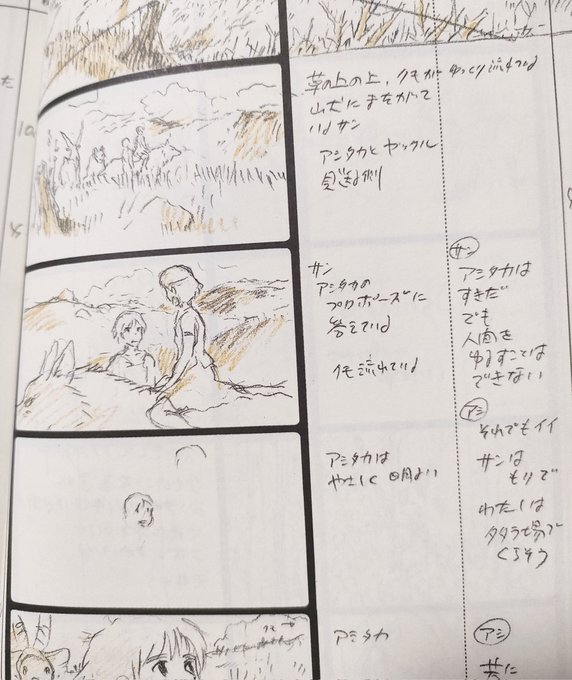 草の上の上、クモが ゆっくり流れている
山犬にまたがって
いるサン
アシタカとヤックル
見送る側
サン
アシタカの
プロポーズに
答えている
サン
アシタカは
すきだ
でも
人間を
ゆるすことは
できない
アシ
それでもイイ
サンは
もりで
わたしは
タタラ場で
くらそう
アシタカは
やさしく 明るい
アシタカ
アシ
共に